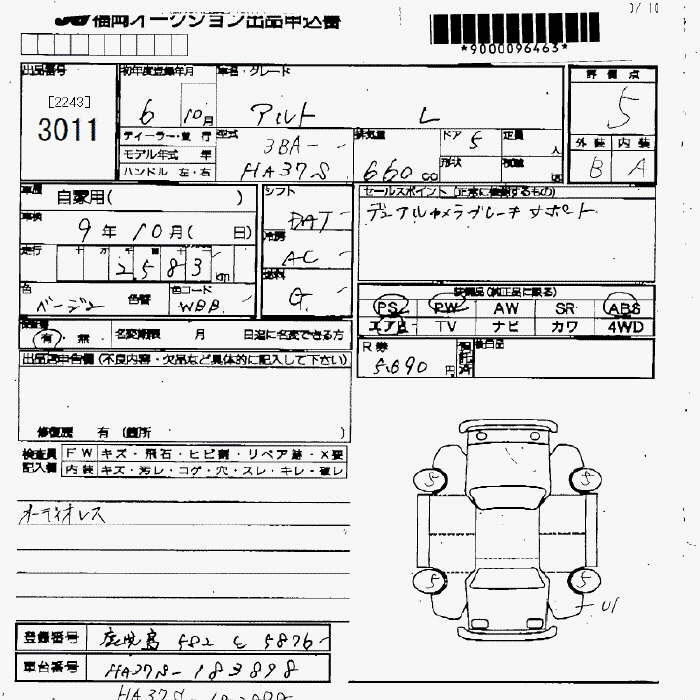 福岡オークション出品申込書
3/10
*9000096463*
出品番号
[2243]
3011
初年度登録年月
6 10月
車名・グレード
アルト L
評価点
5
外装 内装
B A
ディーラー・並行
モデル年式 年
ハンドル 左・右
型式
3BA-
HA37S
排気量
660 cc
ドア 5
形状
定員 人
積載
車歴
自家用( )
車検
9年10月( 日)
走行
2583 km
色
ベージュ
色替
色コード
WBB
シフト
DAT
冷房
AC
燃料
G
セールスポイント (正常に機能するもの)
デュアルカメラブレーキサポート
装備品(純正品に限る)
PS PW AW SR ABS
エアB TV ナビ カワ 4WD
有・無 名変期限 月 日迄に名変できる方
R券
5,690 円
後日品
出品店申告欄 (不良内容・欠品など具体的に記入して下さい)
修復歴 有 (箇所 )
検査員記入欄
FW キズ・飛石・ヒビ割・リペア跡・X要
内装 キズ・汚レ・コゲ・穴・スレ・キレ・破レ
オーディオレス
5 5
5 5
U1
登録番号 鹿児島 582 と 5876
車台番号 HA37S-183898